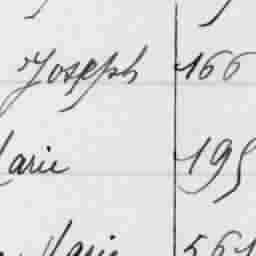 Joseph 166
Marie 195
Marie 561